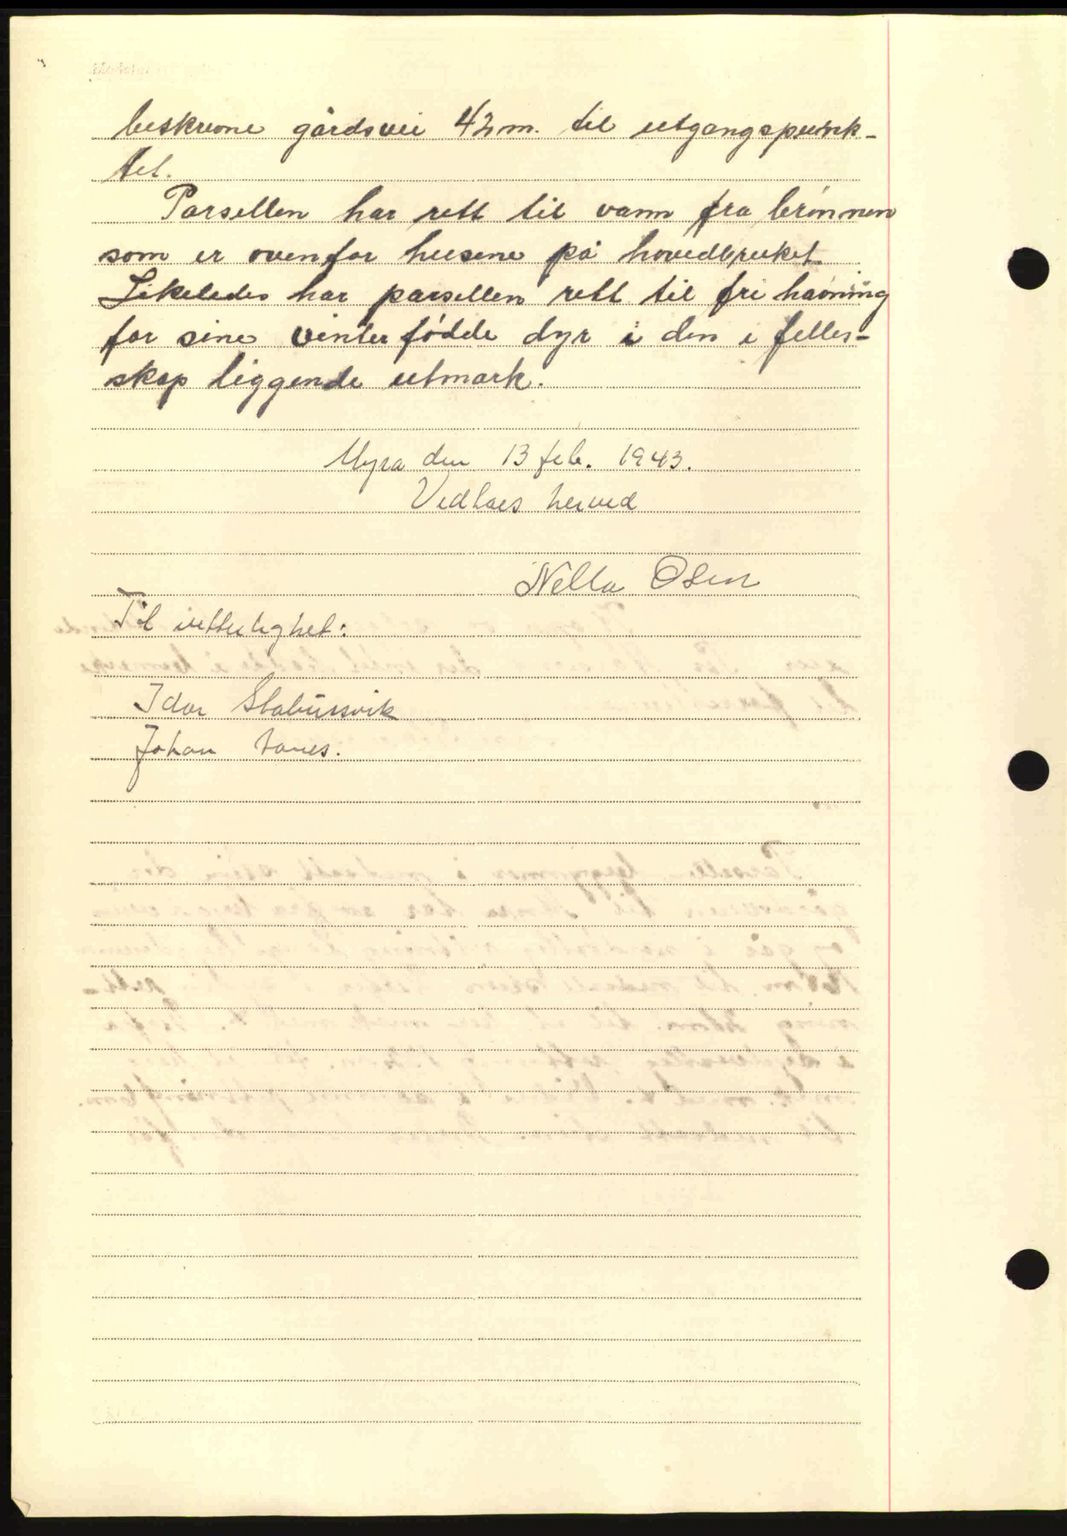 beskrevne gårdsvei 42 m. til utgangspunk-
tet.
Parsellen har rett til vann fra brønnen
som er ovenfor husene på hovedbruket
Likeledes har parsellen rett til fri havning
for sine vinterfødde dyr i den i felles-
skap liggende utmark.
Myra den 13 feb. 1943.
Vedtaes herved
Nella Osen
Til vitterlighet:
Idar Stabursvik
Johan